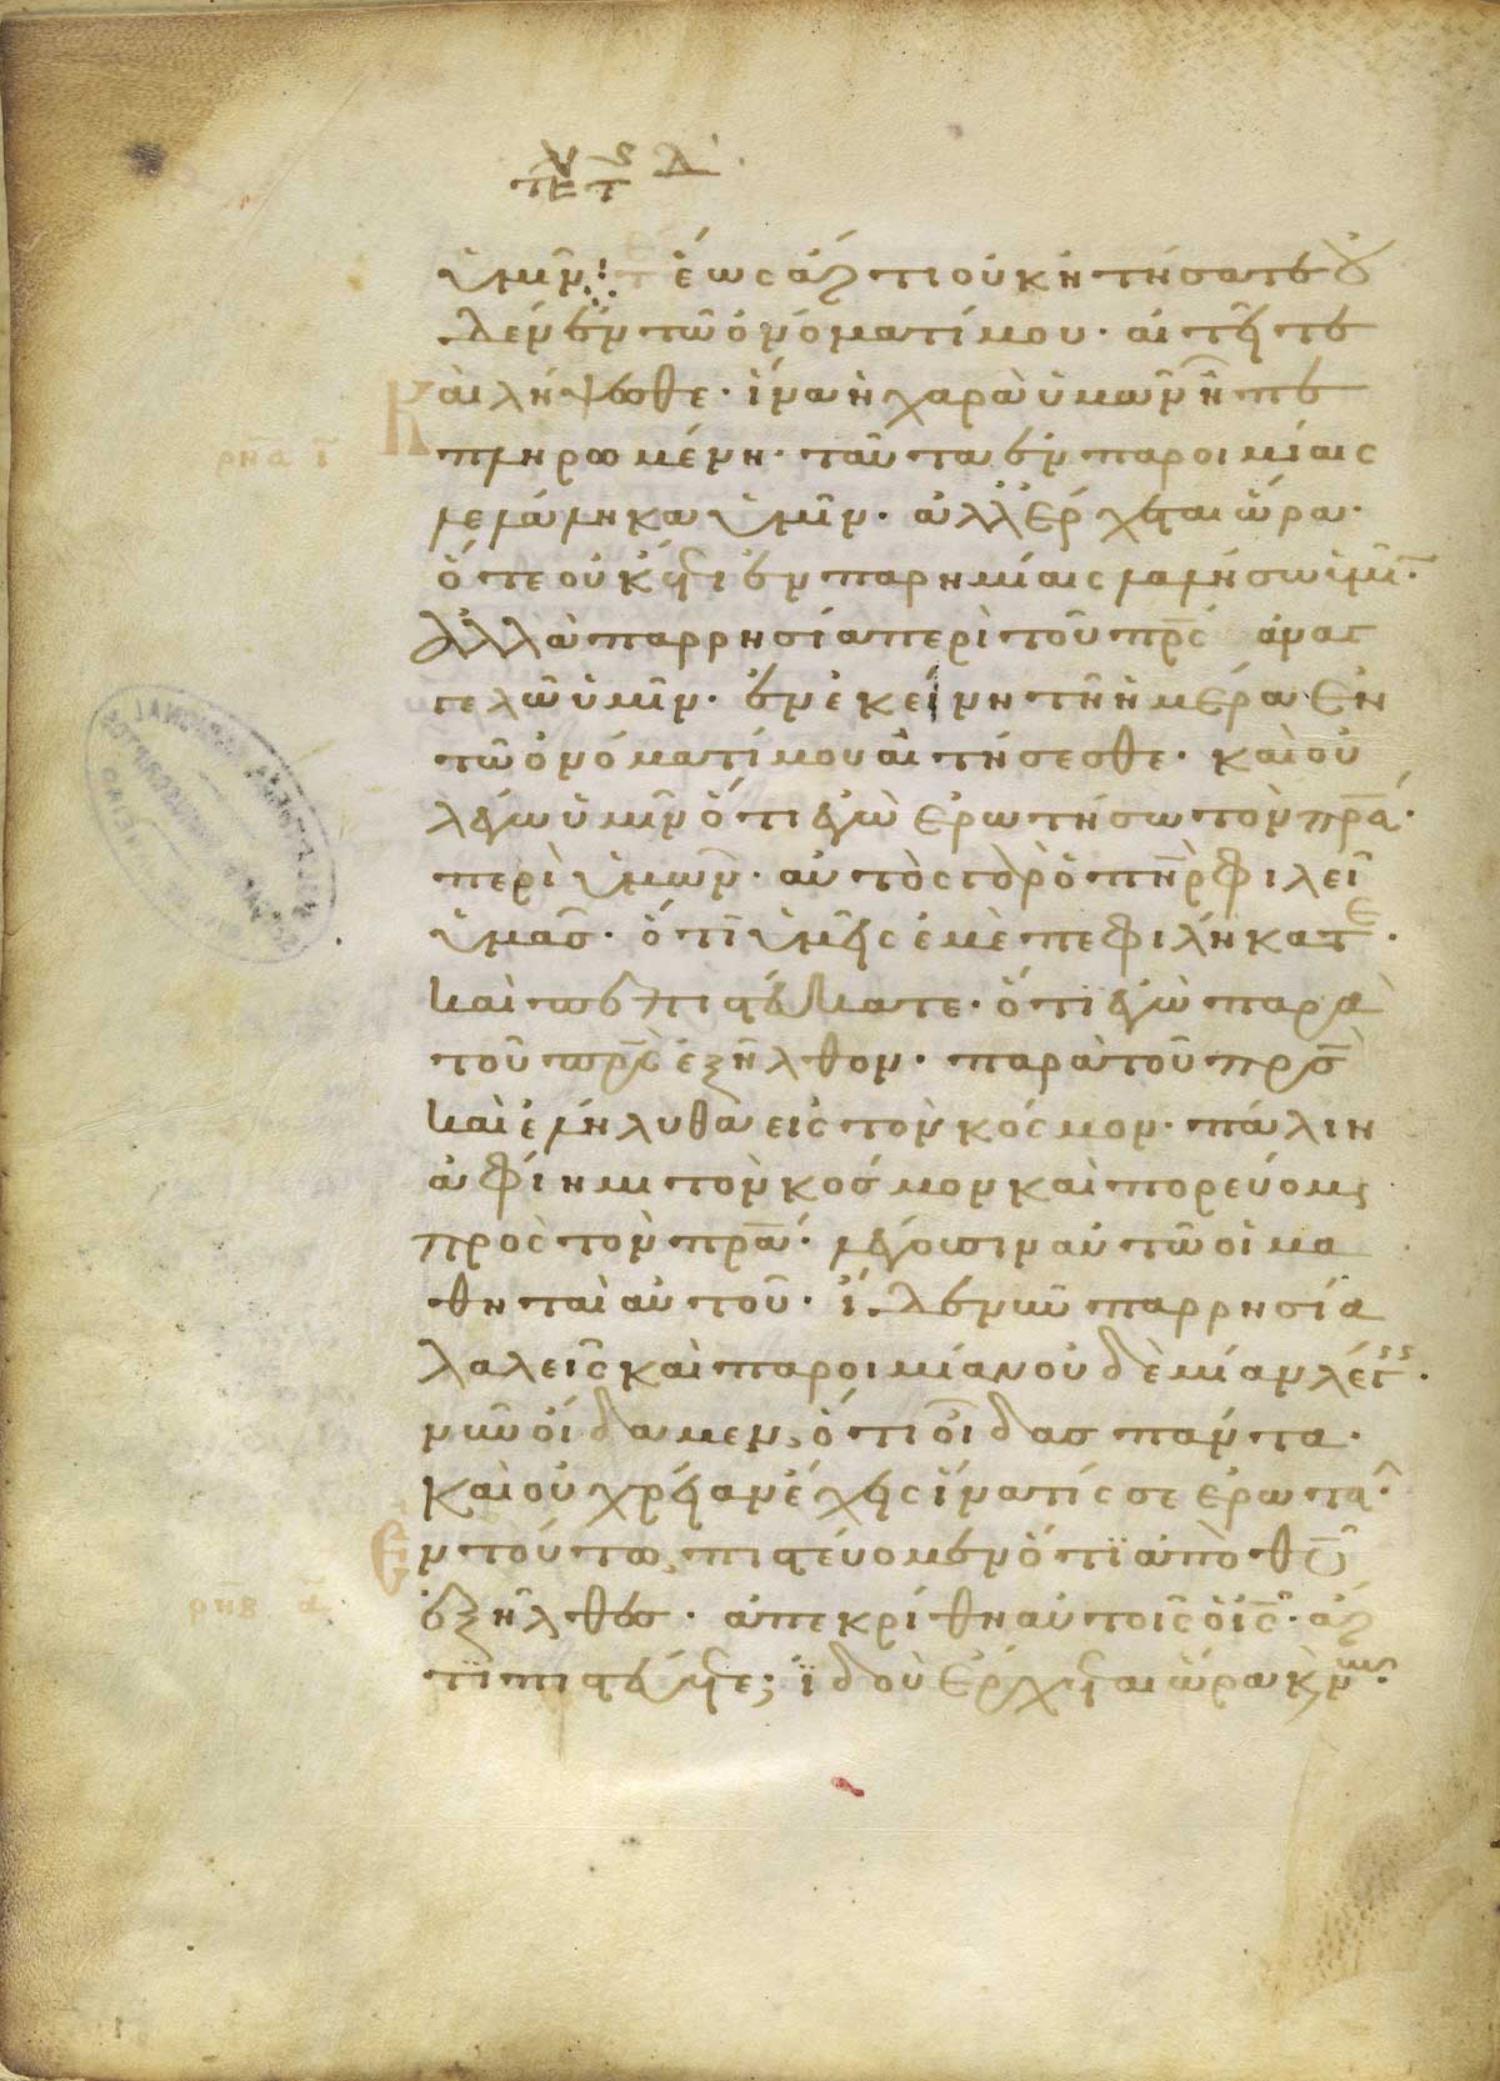 ὑμῖν: ἕως ἄρτι οὐκ ἠτήσατε οὐ
δὲν ἐν τῶ ὀνόματί μου· αἰτεῖτε
καὶ λήψεσθε· ἵνα ἡ χαρὰ ὑμῶν ἦ πε
πληρωμένη· ταῦτα ἐν παροιμίαις
λελάληκα ὑμῖν· ἀλλ' ἔρχεται ὥρα·
ὅτε οὐκ ἔτι ἐν παρημίαις λαλήσω ὑμῖν·
ἀλλὰ παρρησία περὶ τοῦ πρς ἀναγ
γελῶ ὑμῖν· ἐν ἐκείνη τῆ ἡμέρα ἐν
τῶ ὀνόματί μου αἰτήσεσθε· καὶ οὐ
λέγω ὑμῖν ὅτι ἐγὼ ἐρωτήσω τὸν πρα·
περὶ ὑμῶν· αὐτὸς γὰρ ὁ πηρ φιλεῖ
ὑμᾶς· ὅτι ὑμεῖς ἐμὲ πεφιλήκατε·
καὶ πεπιστεύκατε· ὅτι ἐγὼ παρὰ
τοῦ πρς ἐξῆλθον· παρὰ τοῦ πρς
καὶ ἐλήλυθα εἰς τὸν κόσμον· πάλιν
ἀφίημι τὸν κόσμον καὶ πορεύομαι
πρὸς τὸν πρα· λέγουσιν αὐτῶ οἱ μα
θηταὶ αὐτοῦ· ἴδε νῦν παρρησία
λαλεῖς καὶ παροιμίαν οὐδὲ μίαν λέγεις·
νῦν οἴδαμεν, ὅτι οἶδας πάντα·
καὶ οὐ χρείαν ἔχεις ἵνα τίς σε ἐρωτᾶ·
ἐν τούτω πιστεύομεν ὅτι ἀπὸ θυ
ἐξῆλθες· ἀπεκρίθη αὐτοῖς ὁ ις· ἄρ
τι πιστεύετε; ἰδοὺ ἔρχεται ὥρα καὶ νῦν·